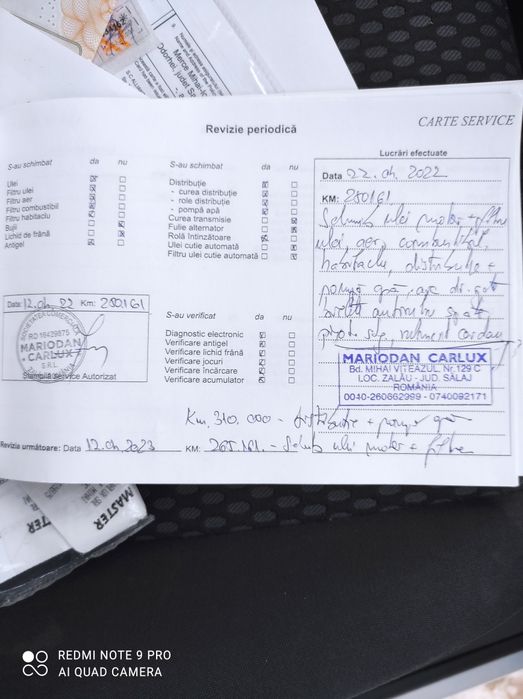 Merce Mihai-Io
Odorhei, judet Să
CARTE SERVICE
Revizie periodică
S-au schimbat da nu
Ulei
Filtru ulei
Filtru aer
Filtru combustibil
Filtru habitaclu
Bujii
Lichid de frână
Antigel
S-au schimbat da nu
Distribuție
- curea distribuție
- role distribuție
- pompă apă
Curea transmisie
Fulie alternator
Rolă întinzătoare
Ulei cutie automată
Filtru ulei cutie automată
Lucrări efectuate
Data 2022
KM: 250161
Schimb ulei motor + filtru
ulei, aer, combustibil,
habitaclu, distribuție +
pompă apă
Data: Km: 250161
SOCIETATEA COMERCIALĂ
RO 16429875
MARIODAN
CARLUX
S.R.L.
Stampilă Service Autorizat
S-au verificat da nu
Diagnostic electronic
Verificare antigel
Verificare lichid frână
Verificare jocuri
Verificare încărcare
Verificare acumulator
MARIODAN CARLUX
Bd. MIHAI VITEAZUL, Nr.129 C
LOC. ZALĂU - JUD. SĂLAJ
ROMÂNIA
0040-260662999 - 0740092171
Km. 310.000 - distribuție + pompă apă
Revizia următoare: Data 2023 KM: 265.161 - Schimb ulei motor + filtre
MASTER
MASTER
REDMI NOTE 9 PRO
AI QUAD CAMERA